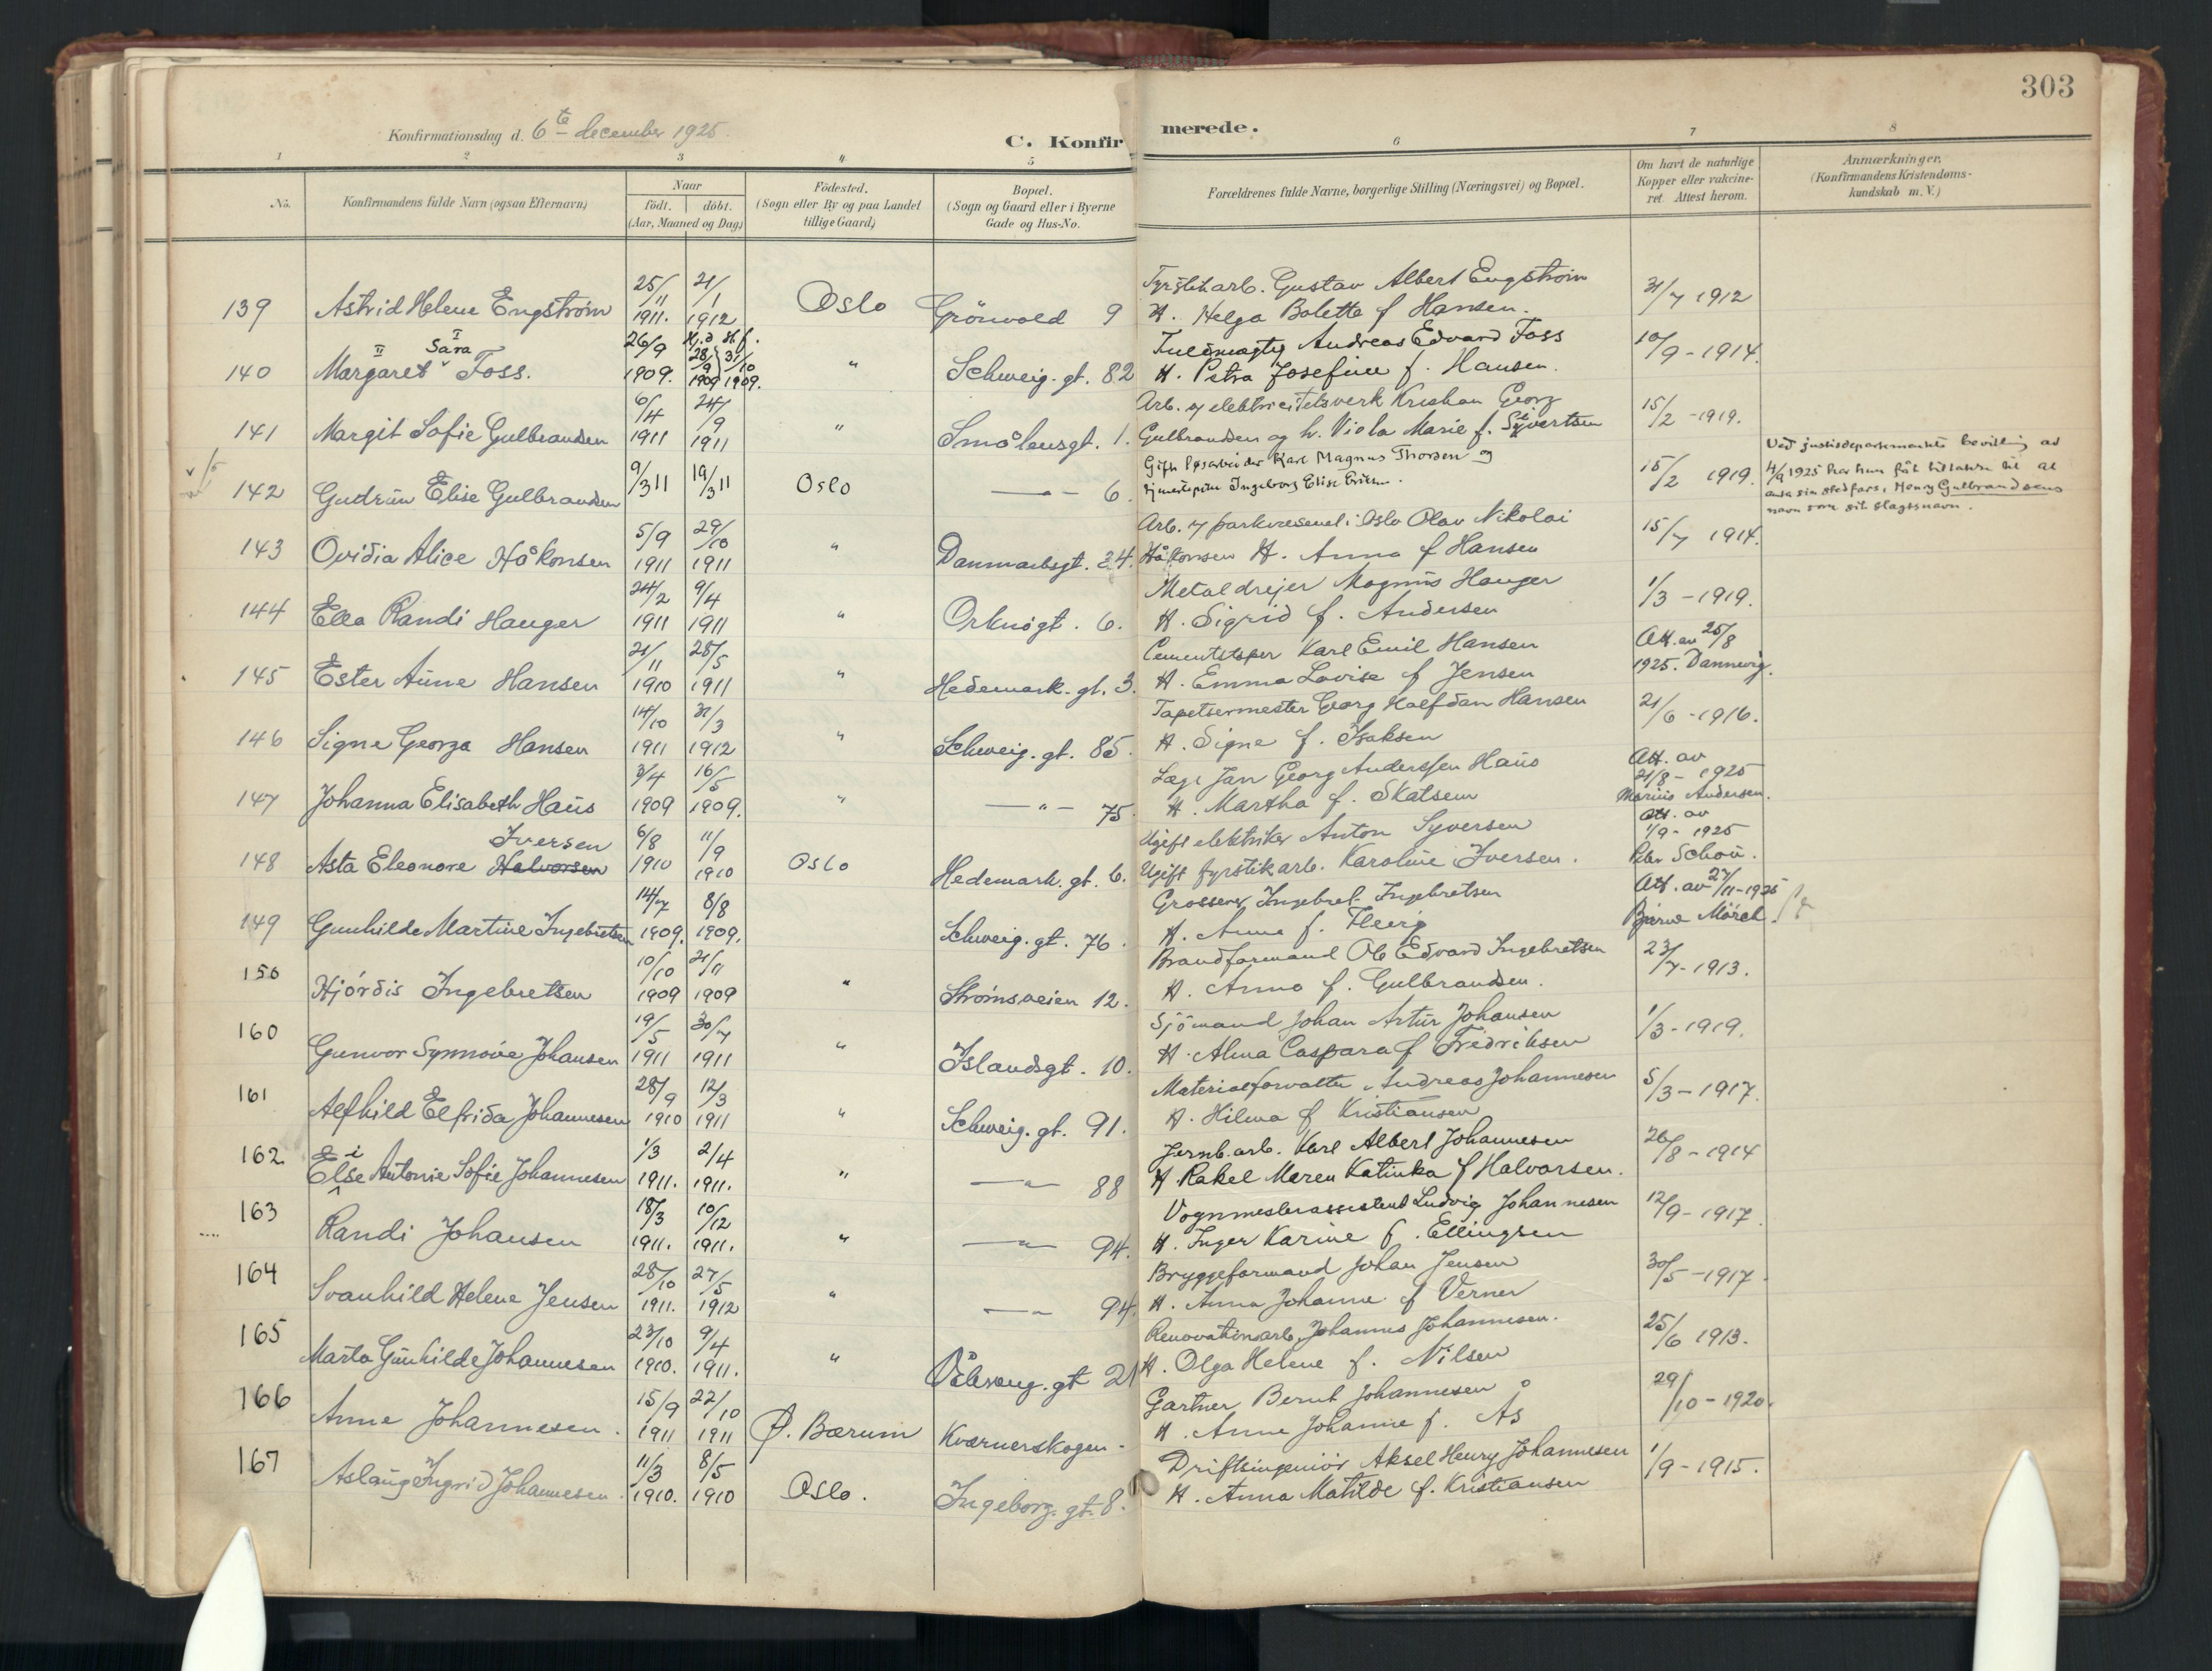 303
Konfirmationsdag d. 6te december 1925.
C. Konfirmerede.
1 2 3 4 5 6 7 8
No.
Konfirmandens fulde Navn (ogsaa Efternavn)
Naar
födt. döbt.
(Aar, Maaned og Dag)
Födested.
(Sogn eller By og paa Landet
tillige Gaard)
Bopæl.
(Sogn og Gaard eller i Byerne
Gade og Hus-No.
Forældrenes fulde Navne, borgerlige Stilling (Næringsvei) og Bopæl.
Om havt de naturlige
Kopper eller vakcine-
ret. Attest herom.
Anmærkninger.
(Konfirmandens Kristendoms-
kundskab m. V.)
139 Astrid Helene Engström 25/11 1911. 21/1 1912 Oslo Grönvold 9
Fyrstikarb. Gustav Albert Engström
H. Helga Bolette f Hansen. 31/7 1912
140 II Margaret I Sara Foss. 26/9 1909. Hj.d 28/9 1909 } St. f. 31/10 1909. " Schweig. gt. 82
Fuldmægtig Andreas Edvard Foss
H. Petra Josefine f. Hansen. 10/9 - 1914.
141 Margit Sofie Gulbrandsen 6/4 1911 24/9 1911 " Smålensgt. 1.
Arb. v elektricitetsverk Kristian Georg
Gulbrandsen og h. Viola Marie f. Sivertsen 15/2 - 1919.
142 Gudrun Elise Gulbrandsen 9/3 11 19/3 11 Oslo — " — 6.
Gift løsarbeider Karl Magnus Thorsen og
tjenestepike Ingeborg Elise Eriksen. 15/2 1919.
Ved justisdepartementets bevilling av
4/9 1925 har hun fåt tillatelse til at
anta sin stedfars, Henry Gulbrandsens
navn som sit slagsnavn.
143 Ovidia Alice Håkonsen 5/9 1911 29/10 1911 " Danmarksgt. 24.
Arb. v parkvæsenet i Oslo Olav Nikolai
Håkonsen H. Anna f Hansen 15/7 1914.
144 Ella Randi Hauger 24/2 1911 9/4 1911 " Orknögt. 6.
Metaldrejer Magnus Hauger
H. Sigrid f. Andersen 1/3 - 1919.
145 Ester Aune Hansen 21/11 1910 28/5 1911 " Hedemark. gt. 3.
Cementstøper Karl Emil Hansen
H. Emma Lovise f Jensen Att. av 25/8
1925. Dannevig.
146 Signe Georga Hansen 14/10 1911 31/3 1912 " Schweig. gt. 85.
Tapetsermester Georg Halfdan Hansen
H. Signe f. Isaksen 21/6 - 1916.
147 Johanna Elisabeth Haus 3/4 1909 16/5 1909. " — " — 75
Læge Jan Georg Anderssen Haus
H. Martha f. Skatsem Att. av
21/8 - 1925
Marius Andersen.
148 Asta Eleonore Halvorsen Iversen 6/8 1910 11/9 1910 Oslo Hedemark. gt. 6.
Ugift elektriker Anton Syversen
Ugift fyrstikarb. Karoline Iversen. Att. av
1/9 - 1925
Peter Schou.
149 Gunhilde Martine Ingebretsen 14/7 1909. 8/8 1909. Schweig. gt. 76.
Grosserer Ingebret Ingebretsen
H. Anna f. Fleirg Att. av 27/11 - 1925
Bjarne Mörch.
150 Hjördis Ingebretsen 10/10 1909 21/11 1909 " Strömsveien 12.
Brandformand Ole Edvard Ingebretsen
H. Anna f. Gulbrandsen. 23/7 - 1913.
160 Gunvor Synnöve Johansen 19/5 1911 30/7 1911 " Islandsgt. 10.
Sjömand Johan Artur Johansen
H. Alma Caspara f Fredriksen 1/3 - 1919.
161 Alfhild Elfrida Johannesen 28/9 1910 12/3 1911 " Schweig. gt. 91.
Materialforvalter Andreas Johannesen
H. Hilma f Kristiansen 5/3 - 1917.
162 Else Antonie Sofie Johannesen 1/3 1911. 2/4 1911. " — " — 88
Jernb.arb. Karl Albert Johannesen
H Rakel Maren Katinka f Halvorsen. 26/8 - 1914
163 Randi Johansen 18/3 1911. 10/12 1911. " — " — 94.
Vognmesterassistent Ludvig Johannesen
H. Inger Karine f. Ellingsen 12/9 - 1917.
164 Svanhild Helene Jensen 28/10 1911. 27/5 1912 " — " — 94.
Bryggeformand Johan Jensen
H. Anna Johanne f Verner 30/5 - 1917.
165 Marta Gunhilde Johannesen 23/10 1910. 9/4 1911. " Vålereng. gt 21
Renovationsarb. Johannes Johannesen.
H. Olga Helene f. Nilsen 25/6 1913.
166 Anne Johannesen. 15/9 1911 22/10 1911 Ø. Bærum Kværnerskogen.
Gartner Bernt Johannesen
H. Anne Johanne f. Ås 29/10 - 1920.
167 Aslaug Ingrid Johannesen. 11/3 1910. 8/5 1910 Oslo. Ingeborg. gt. 8.
Driftsingeniör Aksel Henry Johannesen
H. Anna Matilde f. Kristiansen 1/9 - 1915.